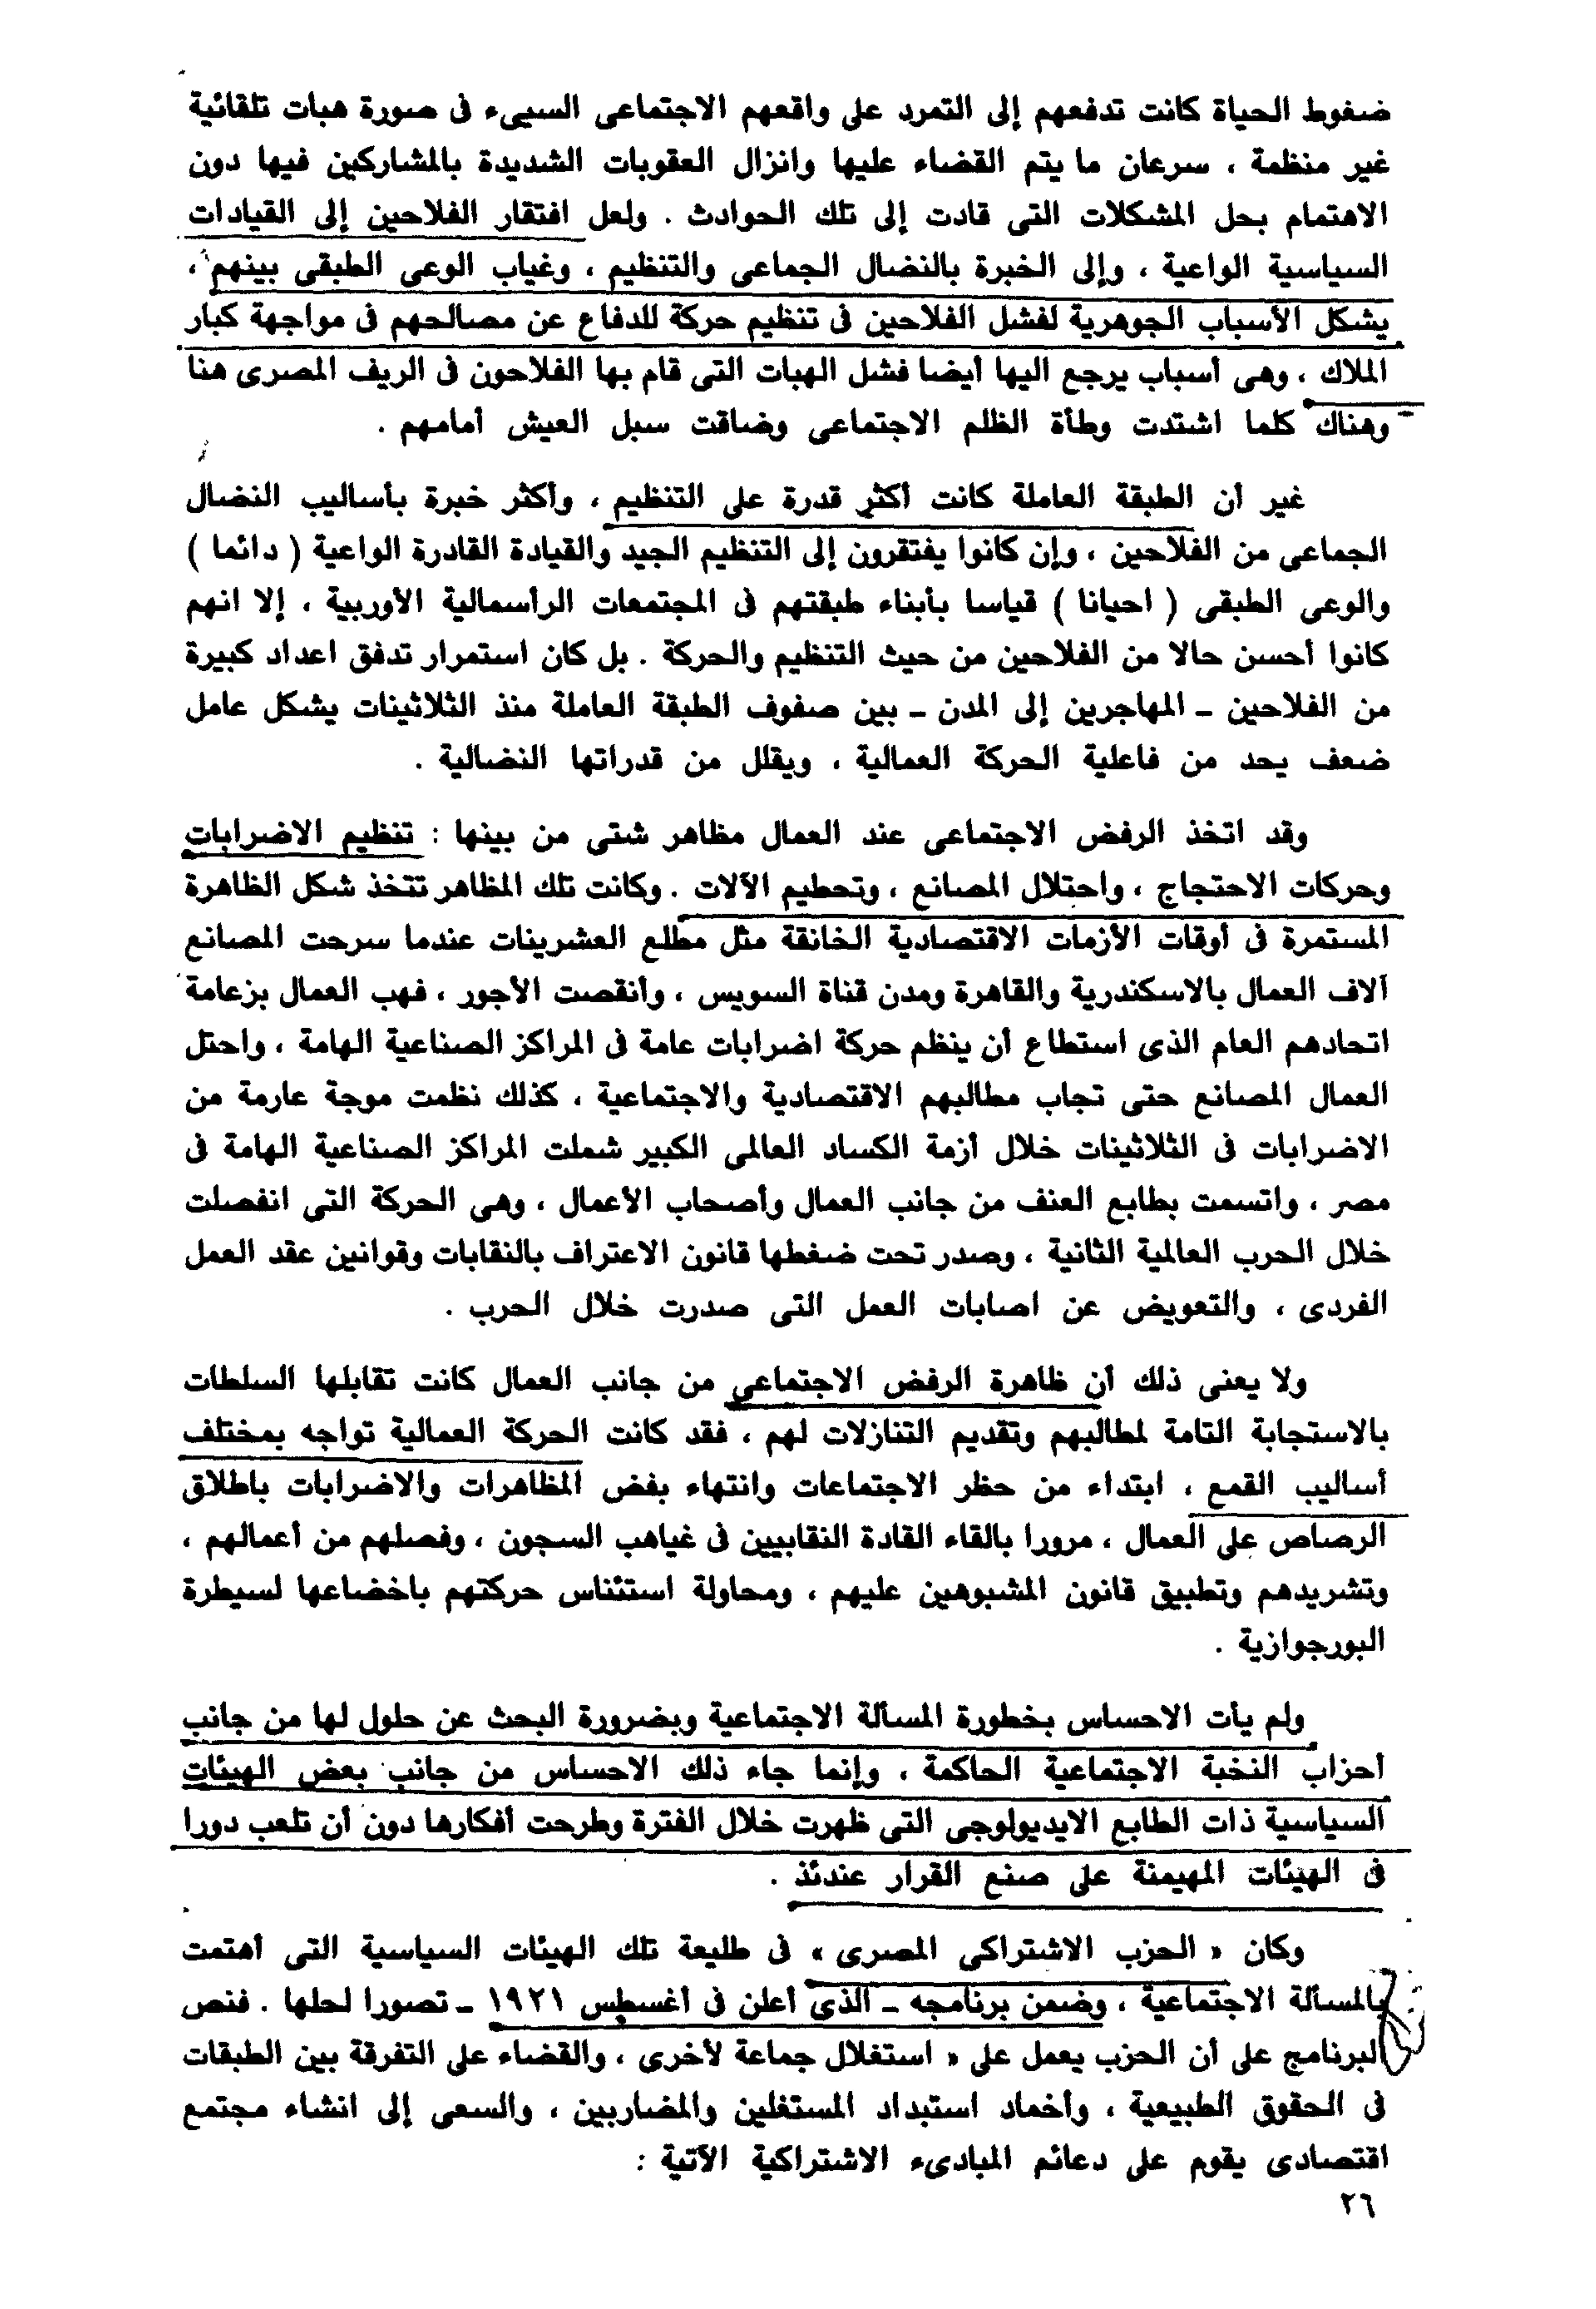 ضغوط الحياة كانت تدفعهم إلى التمرد على واقعهم الاجتماعى السيىء فى صورة هبات تلقائية
غير منظمة ، سرعان ما يتم القضاء عليها وانزال العقوبات الشديدة بالمشاركين فيها دون
الاهتمام بحل المشكلات التى قادت إلى تلك الحوادث . ولعل افتقار الفلاحين إلى القيادات
السياسية الواعية ، وإلى الخبرة بالنضال الجماعى والتنظيم ، وغياب الوعى الطبقى بينهم ،
يشكل الأسباب الجوهرية لفشل الفلاحين فى تنظيم حركة للدفاع عن مصالحهم فى مواجهة كبار
الملاك ، وهى أسباب يرجع اليها أيضا فشل الهبات التى قام بها الفلاحون فى الريف المصرى هنا
وهناك كلما اشتدت وطأة الظلم الاجتماعى وضاقت سبل العيش أمامهم .
غير أن الطبقة العاملة كانت أكثر قدرة على التنظيم ، وأكثر خبرة بأساليب النضال
الجماعى من الفلاحين ، وإن كانوا يفتقرون إلى التنظيم الجيد والقيادة القادرة الواعية ( دائما )
والوعى الطبقى ( احيانا ) قياسا بأبناء طبقتهم فى المجتمعات الرأسمالية الأوربية ، إلا انهم
كانوا أحسن حالا من الفلاحين من حيث التنظيم والحركة . بل كان استمرار تدفق اعداد كبيرة
من الفلاحين - المهاجرين إلى المدن - بين صفوف الطبقة العاملة منذ الثلاثينات يشكل عامل
ضعف يحد من فاعلية الحركة العمالية ، ويقلل من قدراتها النضالية .
وقد اتخذ الرفض الاجتماعى عند العمال مظاهر شتى من بينها : تنظيم الاضرابات
وحركات الاحتجاج ، واحتلال المصانع ، وتحطيم الآلات . وكانت تلك المظاهر تتخذ شكل الظاهرة
المستمرة فى أوقات الأزمات الاقتصادية الخانقة مثل مطلع العشرينات عندما سرحت المصانع
آلاف العمال بالاسكندرية والقاهرة ومدن قناة السويس ، وأنقصت الأجور ، فهب العمال بزعامة
اتحادهم العام الذى استطاع أن ينظم حركة اضرابات عامة فى المراكز الصناعية الهامة ، واحتل
العمال المصانع حتى تجاب مطالبهم الاقتصادية والاجتماعية ، كذلك نظمت موجة عارمة من
الاضرابات فى الثلاثينات خلال أزمة الكساد العالمى الكبير شملت المراكز الصناعية الهامة فى
مصر ، واتسمت بطابع العنف من جانب العمال وأصحاب الأعمال ، وهى الحركة التى انفصلت
خلال الحرب العالمية الثانية ، وصدر تحت ضغطها قانون الاعتراف بالنقابات وقوانين عقد العمل
الفردى ، والتعويض عن اصابات العمل التى صدرت خلال الحرب .
ولا يعنى ذلك أن ظاهرة الرفض الاجتماعى من جانب العمال كانت تقابلها السلطات
بالاستجابة التامة لمطالبهم وتقديم التنازلات لهم ، فقد كانت الحركة العمالية تواجه بمختلف
أساليب القمع ، ابتداء من حظر الاجتماعات وانتهاء بفض المظاهرات والاضرابات باطلاق
الرصاص على العمال ، مرورا بالقاء القادة النقابيين فى غياهب السجون ، وفصلهم من أعمالهم ،
وتشريدهم وتطبيق قانون المشبوهين عليهم ، ومحاولة استئناس حركتهم باخضاعها لسيطرة
البورجوازية .
ولم يأت الاحساس بخطورة المسألة الاجتماعية وبضرورة البحث عن حلول لها من جانب
أحزاب النخبة الاجتماعية الحاكمة ، وإنما جاء ذلك الاحساس من جانب بعض الهيئات
السياسية ذات الطابع الايديولوجى التى ظهرت خلال الفترة وطرحت أفكارها دون أن تلعب دورا
فى الهيئات المهيمنة على صنع القرار عندئذ .
وكان « الحزب الاشتراكى المصرى » فى طليعة تلك الهيئات السياسية التى أهتمت
بالمسألة الاجتماعية ، وضمن برنامجه - الذى أعلن فى أغسطس ١٩٢١ - تصورا لحلها . فنص
البرنامج على أن الحزب يعمل على « استغلال جماعة لأخرى ، والقضاء على التفرقة بين الطبقات
فى الحقوق الطبيعية ، وأخماد استبداد المستغلين والمضاربين ، والسعى إلى انشاء مجتمع
اقتصادى يقوم على دعائم المبادىء الاشتراكية الآتية :
٢٦